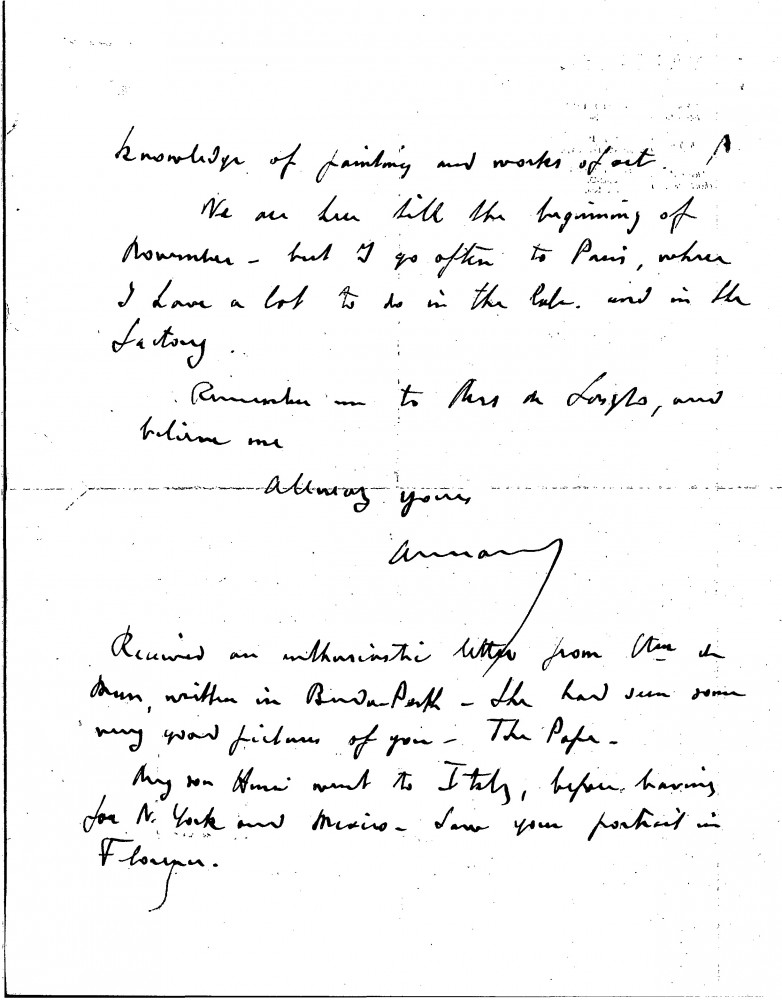 knowledge of painting and works of art.
We are here till the beginning of
November – but I go often to Paris, where
I have a lot to do in the Lab. and in the
factory.
Remember me to Mrs de László, and
believe me
Always yours
Received an enthusiastic letter from Ctesse de
Mun, written in Buda-Pesth – She had seen some
very good pictures of you – The Pope –
My son Henri went to Italy, before leaving
for N. York and Mexico – Saw your portrait in
Florence.